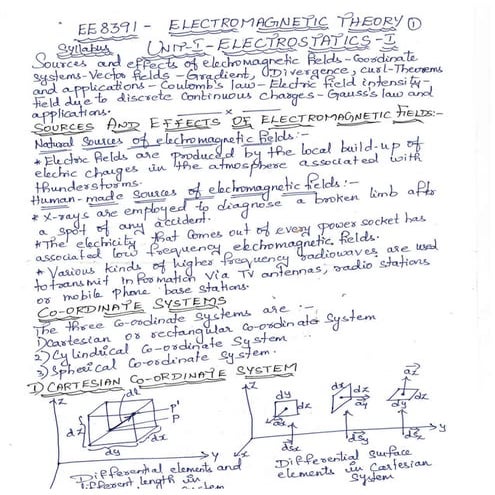 EE8391 - ELECTROMAGNETIC THEORY 1
Syllabus UNIT-I-ELECTROSTATICS-I
Sources and effects of electromagnetic fields - Coordinate
systems - Vector fields - Gradient, Divergence, curl - Theorems
and applications - Coulomb's law - Electric field intensity -
Field due to discrete Continuous Charges - Gauss's law and
applications.
SOURCES AND EFFECTS OF ELECTROMAGNETIC FIELDS:-
Natural Sources of electromagnetic fields:-
* Electric fields are produced by the local build-up of
electric charges in the atmosphere associated with
thunderstorms.
Human-made Sources of electromagnetic fields:-
* X-rays are employed to diagnose a broken limb after
a spot of any accident.
* The electricity that comes out of every power socket has
associated low frequency electromagnetic fields.
* Various kinds of higher frequency radiowaves are used
to transmit information via TV antennas, radio stations
or mobile phone base stations.
CO-ORDINATE SYSTEMS
The three co-ordinate systems are :-
1) Cartesian or rectangular co-ordinate System
2) Cylindrical Co-ordinate System
3) Spherical Co-ordinate System.
1) CARTESIAN CO-ORDINATE SYSTEM
z dl
dz P'
P
dy dx
y
x
z
dy dz
dx dz
dx dy
y
x
Differential elements and
different length in
Differential Surface
elements in Cartesian
System